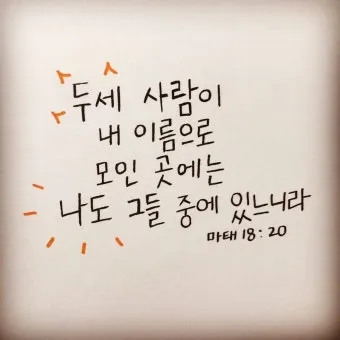 두세 사람이
내 이름으로
모인 곳에는
나도 그들 중에 있느니라
마태 18:20